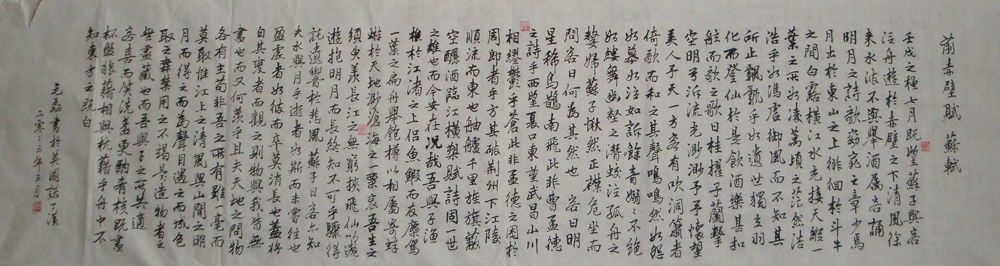 前赤壁賦 蘇軾
壬戌之秋七月既望蘇子與客
泛舟遊於赤壁之下清風徐
來水波不興舉酒屬客誦
明月之詩歌窈窕之章少焉
月出於東山之上徘徊於斗牛
之間白露橫江水光接天縱一
葦之所如凌萬頃之茫然浩
浩乎如馮虛御風而不知其
所止飄飄乎如遺世獨立羽
化而登仙於是飲酒樂甚扣
舷而歌之歌曰桂棹子蘭擊
空明兮泝流光渺渺予予懷望
美人兮天一方客有吹洞簫者
倚歌而和之其聲嗚嗚然如怨
如慕如泣如訴餘音嫋嫋不絕
如縷舞幽壑之潛蛟泣孤舟之
嫠婦蘇子愀然正襟危坐而
問客曰何為其然也客曰月明
星稀烏鵲南飛此非曹孟德
之詩乎西望夏口東望武昌山川
相繆鬱乎蒼此非孟德之困於
周郎者乎方其破荊州下江陵
順流而東也舳艫千里旌旗蔽
空釃酒臨江橫槊賦詩固一世
之雄也而今安在況哉吾與子漁
樵於江渚之上侶魚蝦而友麋鹿駕
一葉之扁舟舉匏樽以相屬寄蜉
蝣於天地渺滄海之一粟哀吾生之
須臾羨長江之無窮挾飛仙以遨
遊抱明月而長終知不可乎驟得
託遺響於悲風蘇子曰客亦知
夫水與月乎逝者如斯而未嘗往也
盈虛者如彼而卒莫消長也蓋將
自其變者而觀之則物與我皆無
盡也而又何羨乎且夫天地之間物
各有主苟非吾之所有雖一毫而
莫取惟江上之清風與山間之明
月而得之而為聲目遇之而成色
取之無禁用之不竭是造物者之
無盡藏也而吾與子之所共適
客喜而笑洗盞更酌肴核既盡
杯盤狼籍相與枕藉乎舟中不
知東方之既白
元磊書於英國諾丁漢
二零一五年三月